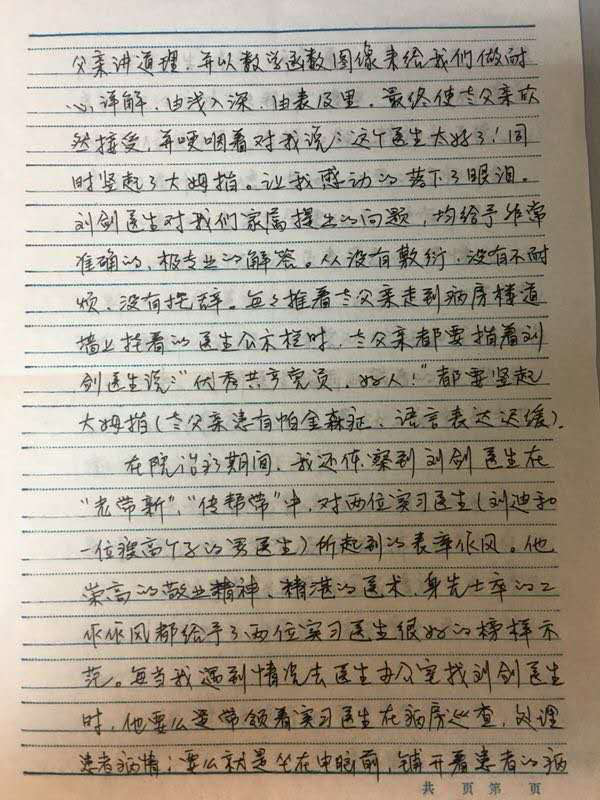 父亲讲道理，并以数学函数图像来给我们做耐
心详解，由浅入深，由表及里，最终使老父亲欣
然接受，并哽咽着对我说：这个医生太好了！同
时竖起了大姆指。让我感动的落下了眼泪。
刘剑医生对我们家属提出的问题，均给予非常
准确的、极专业的解答。从没有敷衍，没有不耐
烦，没有托辞。每每推着老父亲走到病房楼道
墙上挂着的医生公示栏时，老父亲都要指着刘
剑医生说：“优秀共产党员，好人！”都要竖起
大姆指（老父亲患有帕金森症，语言表达迟缓）。
在院治疗期间，我还体察到刘剑医生在
“老带新”，“传帮带”中，对两位实习医生（刘迪和
一位瘦高个子的男医生）所起到的表率作风。他
崇高的敬业精神、精湛的医术、身先士卒的工
作作风都给予了两位实习医生很好的榜样示
范。每当我遇到情况去医生办公室找刘剑医生
时，他要么是带领着实习医生在病房巡查，处理
患者病情；要么就是坐在电脑前，铺开着患者的病
共 页 第 页